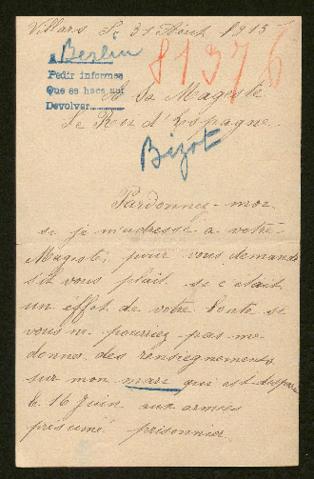 Villars Sr 31 Aout 1915
a Berlin
81376
Pedir informes
Que se hace aqui
Devolver
A Sa Magesté
Le Roi d'Espagne
Bizot
Pardonnez-moi
si je m'adresse à votre
Magesté, pour vous demande
s'il vous plait si c'etait
un effet de votre bonté si
vous ne pourriez pas me
donner des renseignements
sur mon mari qui est disparu
le 16 Juin aux armées
présumé prisonnier